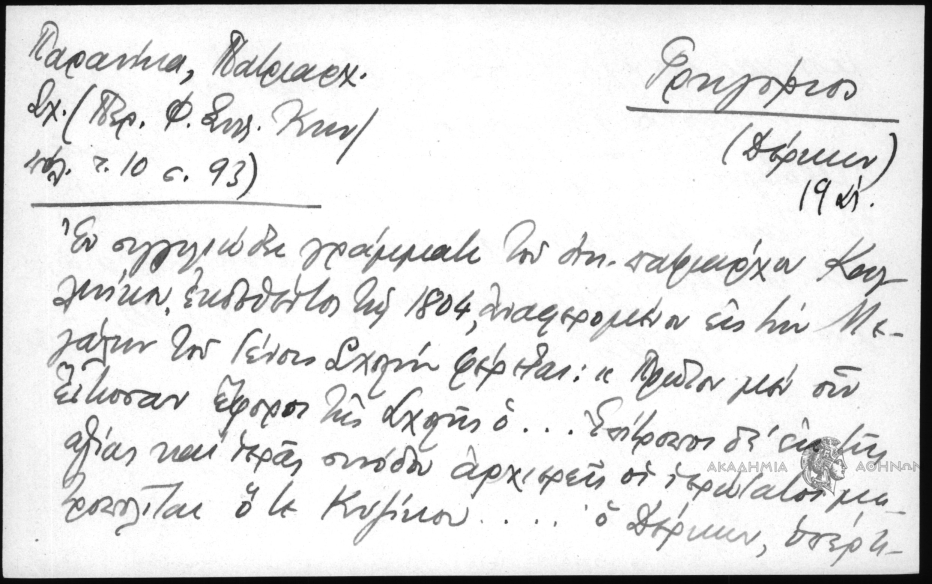 Παρανίκα, Πατριαρχ.
Σχ. (Περ. Φ. Συλ. Κων/
πόλ. τ. 10 σ. 93)
Γρηγόριος
(Δέρκων)
19 αἰ.
Ἐν σιγγιλιώδει γράμματι τοῦ οἰκ. πατριάρχου Καλ
λινίκου, ἐκδοθέντος τῷ 1804, ἀναφερομένου εἰς τὴν Με-
γάλην τοῦ Γένους Σχολὴν φέρεται: "Πρῶτον μὲν οὖν
ἔστωσαν ἔφοροι τῆς Σχολῆς ὁ ... Ἐπίτροποι δὲ ἐκ τῆς
ἁγίας καὶ ἱερᾶς συνόδου ἀρχιερεῖς οἱ ἱερώτατοι μη
τροπολῖται ὅ τε Κυζίκου .... ὁ Δέρκων, ὑπέρτι-
ΑΚΑΔΗΜΙΑ ΑΘΗΝΩΝ